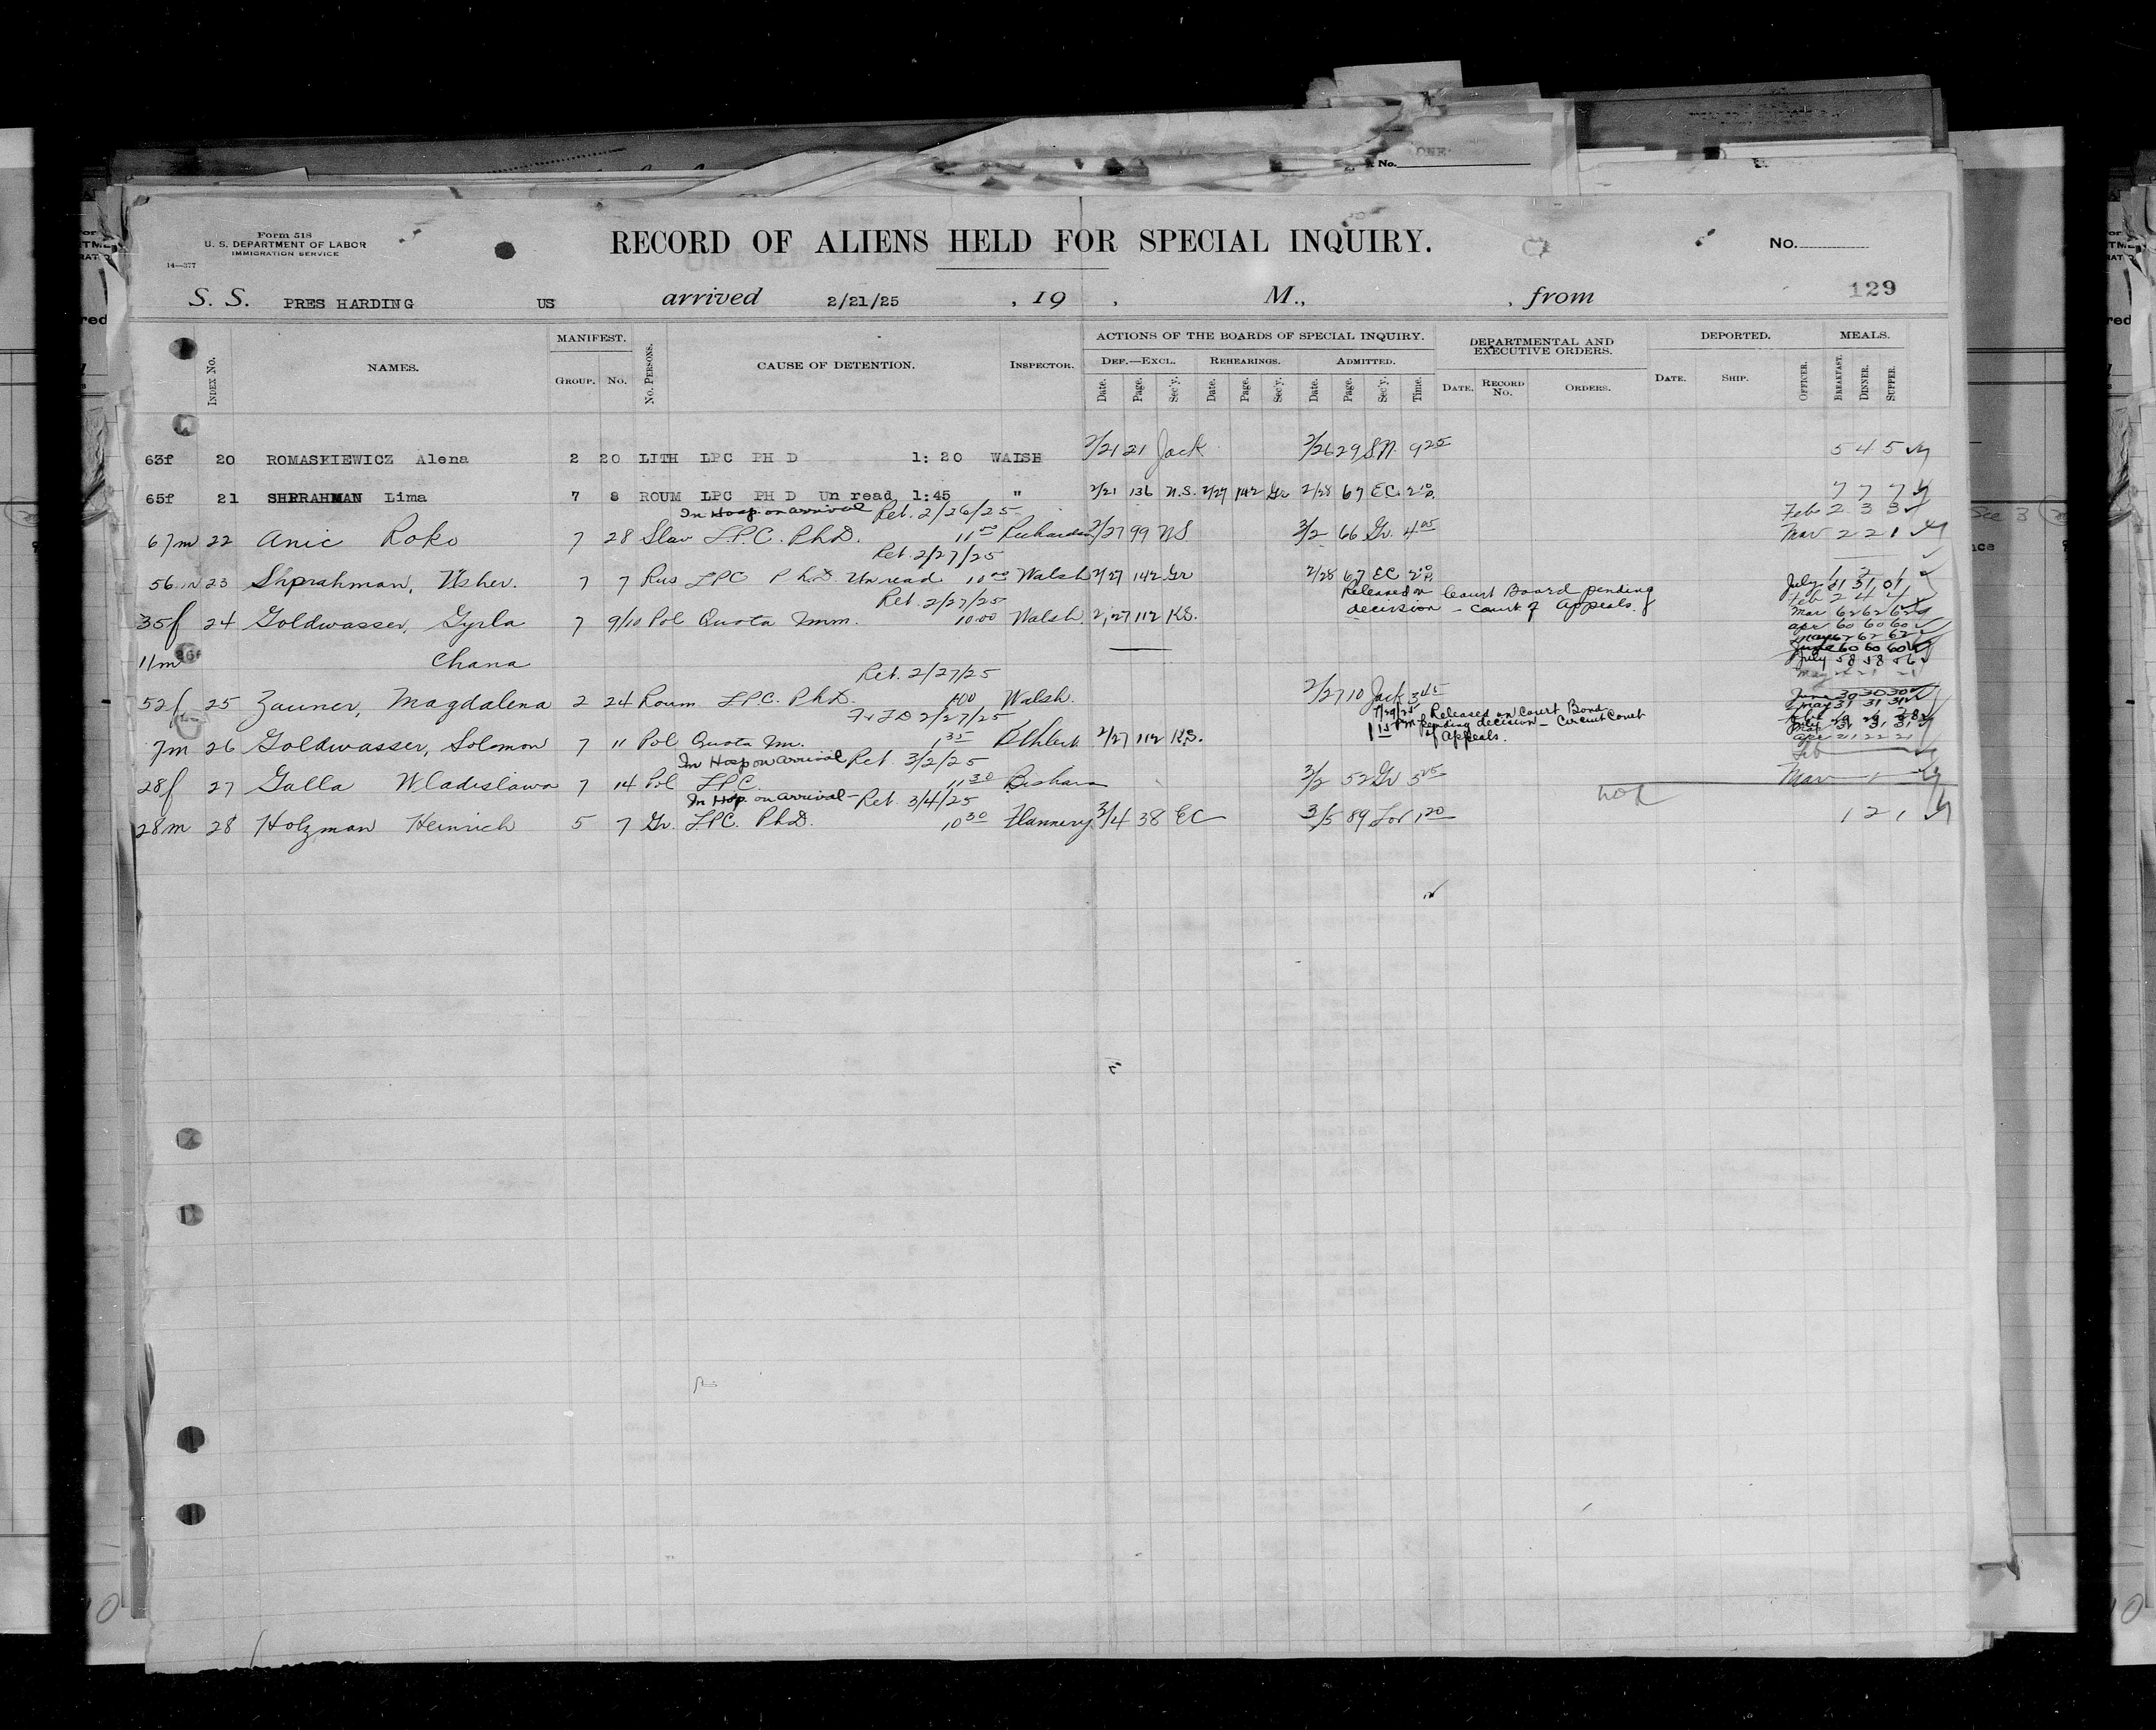 No.
Form 518
U. S. DEPARTMENT OF LABOR
IMMIGRATION SERVICE
14—377
RECORD OF ALIENS HELD FOR SPECIAL INQUIRY.
No.
S. S. PRES HARDING US arrived 2/21/25 , 19 , M., , from 129
INDEX NO. NAMES. MANIFEST. GROUP. NO. NO. PERSONS. CAUSE OF DETENTION. INSPECTOR. ACTIONS OF THE BOARDS OF SPECIAL INQUIRY. DEPARTMENTAL AND EXECUTIVE ORDERS. DEPORTED. MEALS.
DEF.—EXCL. REHEARINGS. ADMITTED.
Date. Page. Sec'y. Date. Page. Sec'y. Date. Page. Sec'y. Time. DATE. RECORD NO. ORDERS. DATE. SHIP. OFFICER. BREAKFAST. DINNER. SUPPER.
63f 20 ROMASKIEWICZ Alena 2 20 LITH LPC PH D 1:20 WALSH 2/21 21 Jack 2/26 29 S.N. 9 25 5 4 5
65f 21 SHPRAHMAN Lima 7 8 ROUM LPC PH D Un read 1:45 " 2/21 136 N.S. 2/27 142 Gr 2/28 67 EC. 2 10 7 7 7
In Hosp. on arrival Ret. 2/26/25 Feb 2 3 3
67m 22 Anic Roko 7 28 Slav L.P.C. Ph.D. 11 00 Richardson 2/27 99 NS 3/2 66 Gr. 4 05 Mar 2 2 1
Ret. 2/27/25
56m 23 Shprahman, Usher. 7 7 Rus LPC Ph.D Un read 10 00 Walsh 2/27 142 Gr 2/28 67 EC 2 10 1 2 1
Ret. 2/27/25 Released on Court Board pending
decision – Court of Appeals.
35f 24 Goldwasser, Gyrla 7 9/10 Pol Quota Imm. 10.00 Walsh 2/27 112 K.S.
Feb 2 4 4
Mar 62 62 62
Apr 60 60 60
May 62 62 62
June 60 60 60
July 58 58 56
11m Chana
Ret. 2/27/25
52f 25 Zauner, Magdalena 2 24 Roum L.P.C. Ph.D. 1.00 Walsh. 2/27 10 Jack 3 45
Fr T D 2/27/25 7/29/25 Released on Court Bond
1 15 pm pending decision – Circuit Court
of Appeals.
7m 26 Goldwasser, Solomon 7 11 Pol Quota Im. 1 35 2/27 112 K.S.
In Hosp on arrival Ret. 3/2/25
28f 27 Galla Wladislawa 7 14 Pol LPC. 11 30 Bishara 3/2 52 Gr 5 25 Mar
In Hosp. on arrival – Ret. 3/4/25
28m 28 Holzman Heinrich 5 7 Gr. LPC. Ph.D. 10 30 Flannery 3/4 38 EC 3/5 89 Lor 1 20 1 2 1